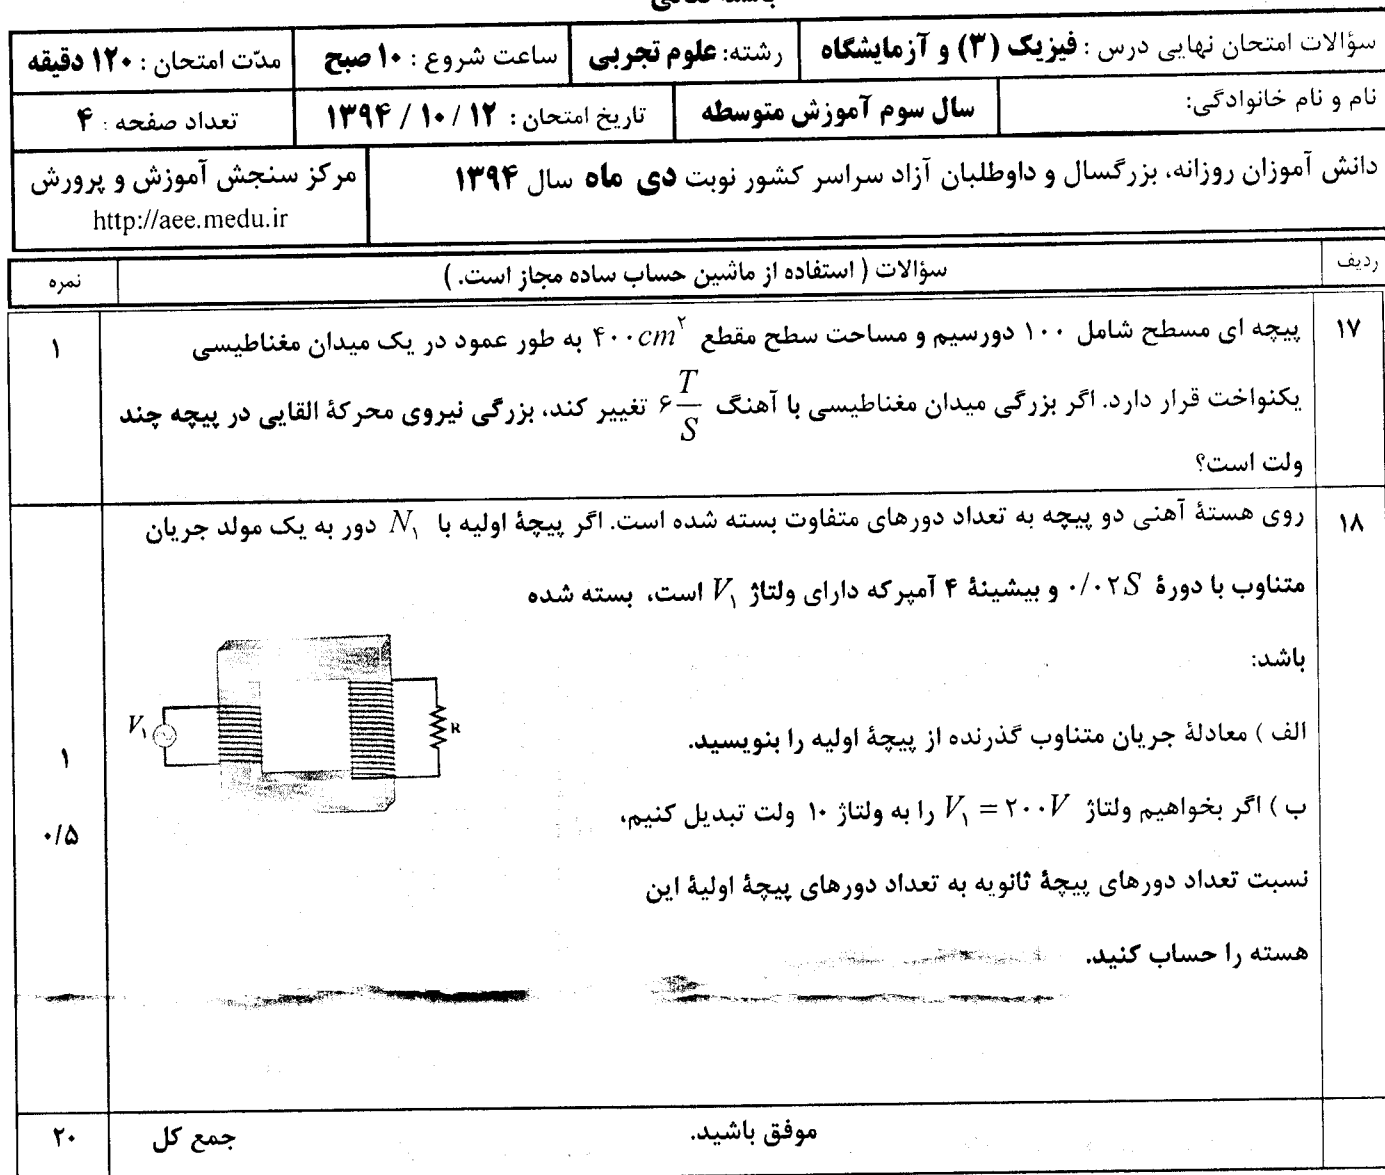 سؤالات امتحان نهایی درس : فیزیک (۳) و آزمایشگاه رشته: علوم تجربی ساعت شروع : ۱۰ صبح مدّت امتحان : ۱۲۰ دقیقه
نام و نام خانوادگی: سال سوم آموزش متوسطه تاریخ امتحان : ۱۲ / ۱۰ / ۱۳۹۴ تعداد صفحه : ۴
دانش آموزان روزانه، بزرگسال و داوطلبان آزاد سراسر کشور نوبت دی ماه سال ۱۳۹۴ مرکز سنجش آموزش و پرورش
http://aee.medu.ir
ردیف سؤالات ( استفاده از ماشین حساب ساده مجاز است. ) نمره
۱۷ پیچه ای مسطح شامل ۱۰۰ دورسیم و مساحت سطح مقطع ۴۰۰cm^۲ به طور عمود در یک میدان مغناطیسی ۱
یکنواخت قرار دارد. اگر بزرگی میدان مغناطیسی با آهنگ ۶ T/S تغییر کند، بزرگی نیروی محرکهٔ القایی در پیچه چند
ولت است؟
۱۸ روی هستهٔ آهنی دو پیچه به تعداد دورهای متفاوت بسته شده است. اگر پیچهٔ اولیه با N۱ دور به یک مولد جریان
متناوب با دورهٔ ۰/۰۲S و بیشینهٔ ۴ آمپرکه دارای ولتاژ V۱ است، بسته شده
باشد:
V۱ R
الف ) معادلهٔ جریان متناوب گذرنده از پیچهٔ اولیه را بنویسید. ۱
ب ) اگر بخواهیم ولتاژ V۱ = ۲۰۰V را به ولتاژ ۱۰ ولت تبدیل کنیم، ۰/۵
نسبت تعداد دورهای پیچهٔ ثانویه به تعداد دورهای پیچهٔ اولیهٔ این
هسته را حساب کنید.
موفق باشید. جمع کل ۲۰